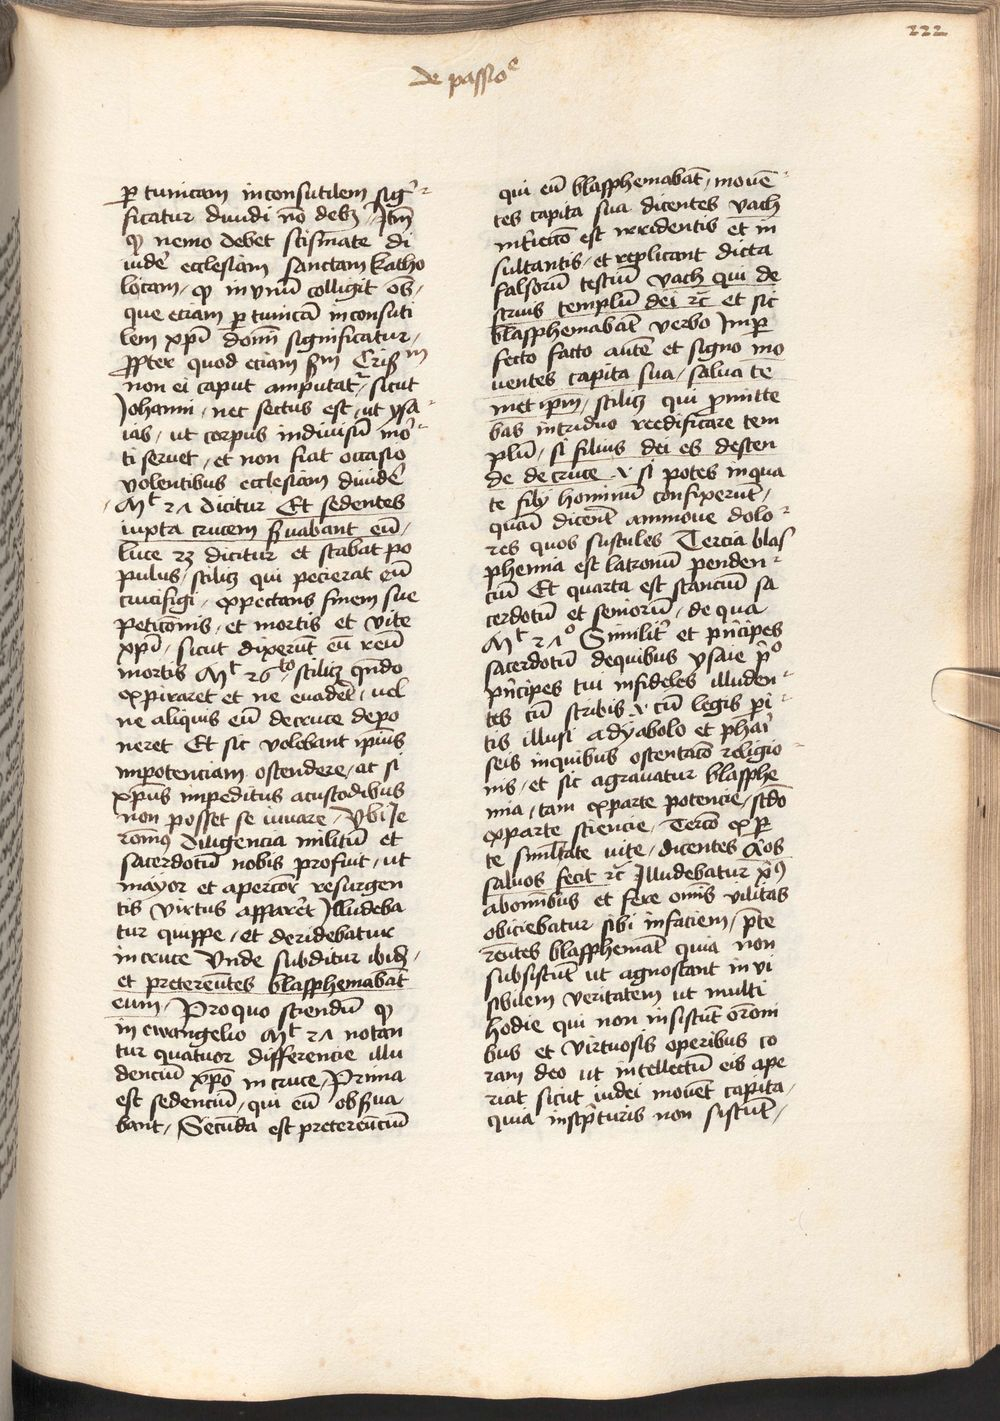 222
de passioe
ꝑ tunicam inconsutilem sig͛
ficatur diuidi nō debꝫ / Jtm̄
qꝫ nemo debet scismate di
uide͛ ecclesiam sanctam katho
licam / qꝫ in vnū colligit oēs /
que etiam ꝑ tunicā inconsuti
lem xp̄i domī significatur /
ꝓpter quod etiam scdm Crisᵐ
non ei caput amputat͛ / sicut
Johanni / nec sectus est / ut ysa
ias / ut corpus indiuisū mo͛
ti seruet / et non fiat occasio
volentibus ecclesiam diuide͛
Mᵗ 27 dicitur Et sedentes
iuxta crucem ẜuabant eū /
luce 23 dicitur et stabat po
pulus / scilicꝫ qui pecierat eū
crucifigi / expectans finem sue
peticōnis / et mortis et vite
xp̄i / sicut dixerūt eū reū
mortis Mᵗ 26ᵗᵒ / scilicꝫ qn̄do
expiraret et ne euadet͛ / uel
ne aliquis eū de cruce depo
neret Et sic volebant ip̄ius
impotenciam ostendere / ac si
xp̄us impeditus a custodibus
non posset se iuuare / Vbi Je
romꝰ Diligencia militū et
sacerdotū nobis profuit / ut
mayor et apercior resurgen
tis virtus apparet͛ Jlludeba
tur quippe / et deridebatur
in cruce Vnde subditur ibidꝫ /
et pretereūtes blasphemabāt
eum / Pro quo sciendū qꝫ
in ewangelio Mᵗ 27 notan
tur quatuor differencie illu
denciū xp̄o in cruce / Prima
est sedenciū / qui eū obẜua
bant / Secunda est pretereūciū
qui eū blasphemabāt / mouē
tes capita sua dicentes vach
intericō est irridentis et in
sultantis / et replicant dicta
falsorū testiū Vach qui de
struis templū dei ꝛc̄ et sic
blasphemabāt verbo Jmꝑ
fecto facto autē et signo mo
uentes capita sua / salua te
met ip̄m / scilicꝫ qui ꝓmitte
bas in triduo reedificare tem
plū / si filius dei es descen
de de cruce / si potes inqua
te filij hominū confixerūt /
quasi dicerēt ammoue dolo
res quos sustules Tercia blas
phemia est latronū penden
ciū Et quarta est stanciū sa
cerdotū et seniorū / de qua
Mᵗ 27º Similit͛ et pn̄cipes
sacerdotū de quibus ysaie pº
pn̄cipes tui infideles illuden
tes cū scribis / cū legis ꝑi
tis illusi a dyabolo et phari
seis in quibus ostentacō religio
nis / et sic agrauatur blasphe
mia / tam ex parte potencie / scdō
ex parte sciencie / Tercō ex ꝑ
te simltate uite / dicentes Alios
saluos fecit ꝛc̄ Jlludebatur xp̄ꝰ
ab omībus et fere omīs vilitas
obiciebatur sibi in faciem / p̄te
reūtes blasphemāt quia non
subsistūt ut agnoscant in vi
sibilem veritatem ut multi
hodie qui non insistūt orōni
bus et virtuosis operibus co
ram deo ut intellectū eis ape
riat sicut iudei mouēt capita /
quia in scp̄turis non sistūt /